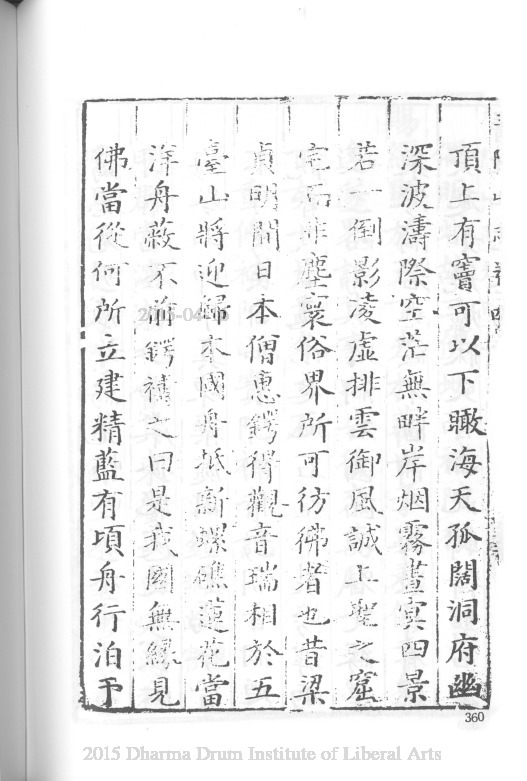 頂上有竇可以下瞰海天孤闊洞府幽
深波濤際空茫無畔岸烟霧晝冥四景
若一倒影凌虛排雲御風誠上聖之窟
宅而非塵寰俗界所可彷彿者也昔梁
貞明間日本僧惠鍔得觀音瑞相於五
臺山將迎歸本國舟抵新螺礁蓮花當
洋舟蔽不前鍔禱之曰是我國無緣見
佛當從何所立建精藍有頃舟行泊于
360
2015 Dharma Drum Institute of Liberal Arts